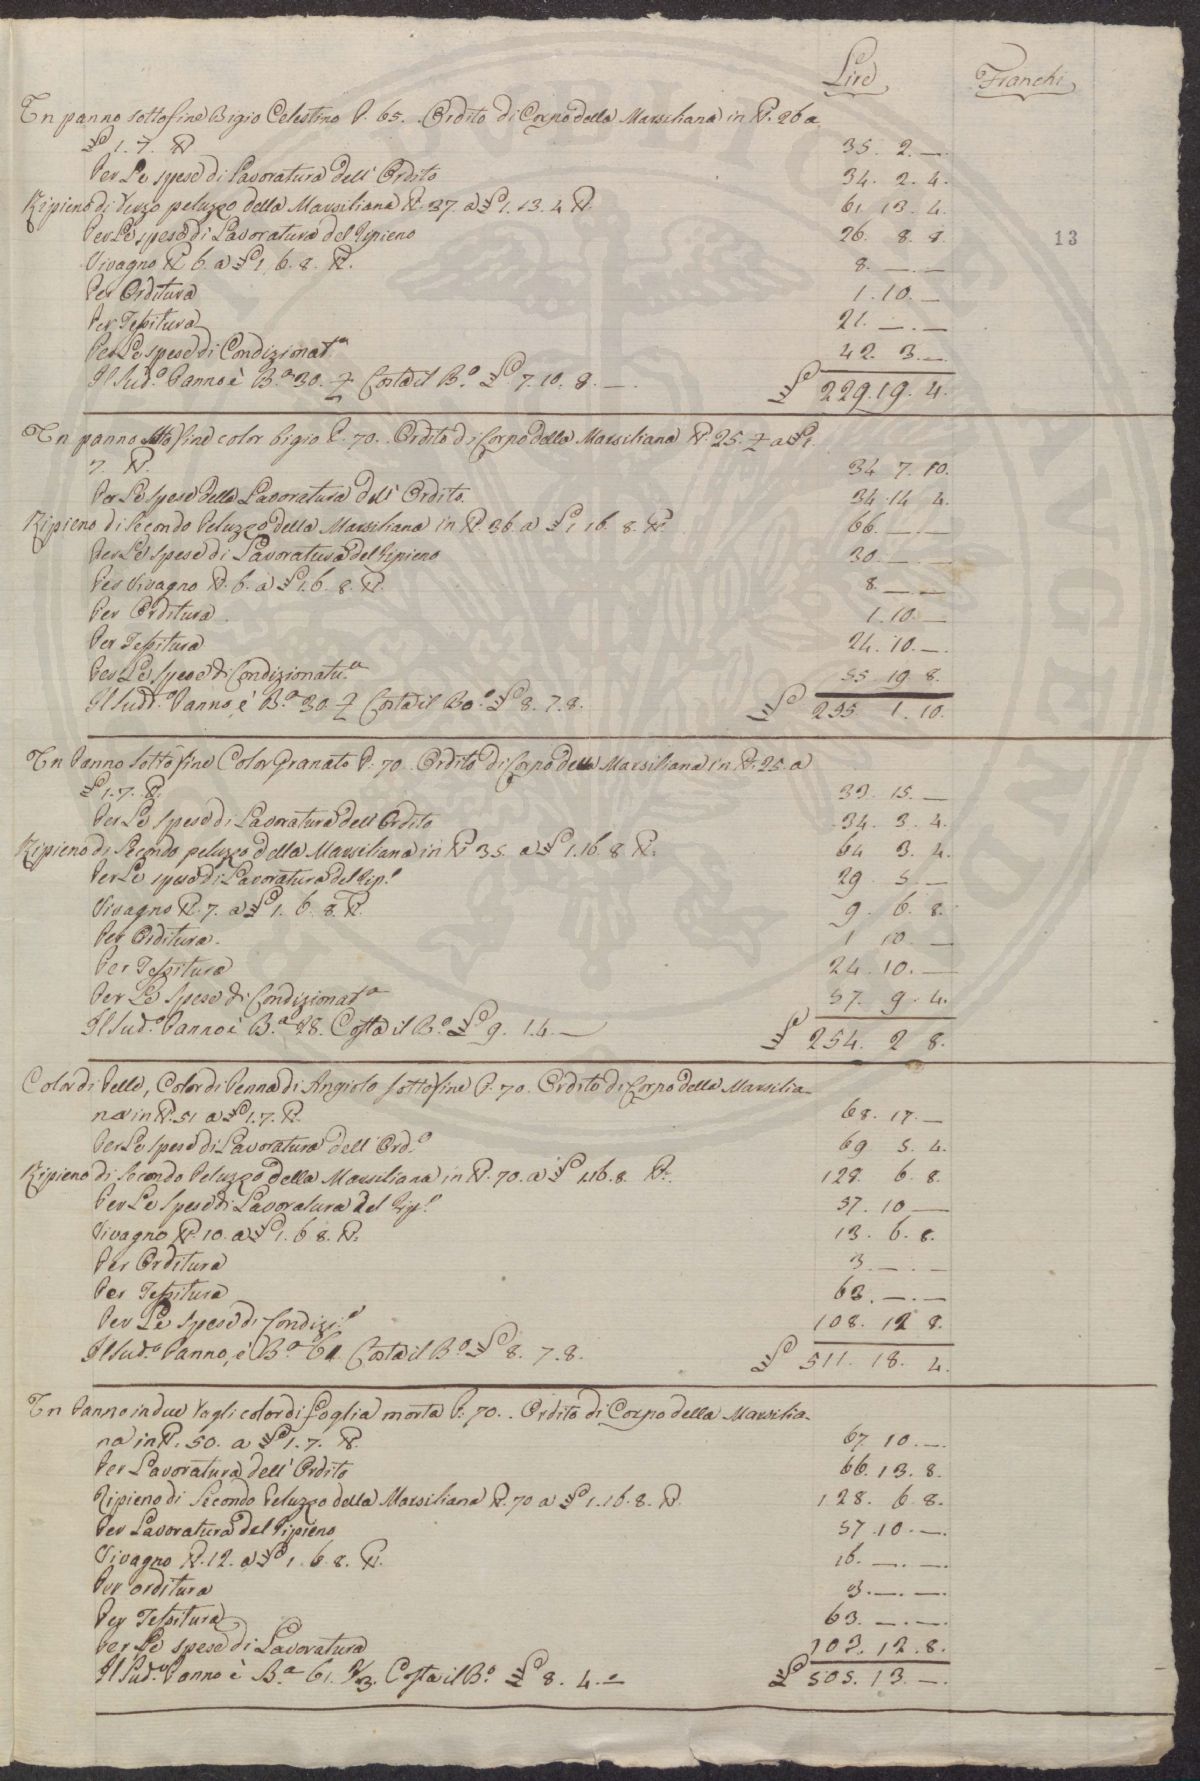 Lire Franchi
Un panno sottofine Bigio Celestino P. 65. Ordito di Corpo della Marsiliana in ℔. 26 a
£ 1. 7. ℔ 35. 2. —
Per Le spese di Lavoratura dell' Ordito 34. 2. 4.
Ripieno di Terzo peluzzo della Marsiliana ℔. 37. a £ 1. 13. 4 ℔. 61. 13. 4.
Per Le spese di Lavoratura del Ripieno 26. 8. 8.
13
Vivagno ℔ 6. a £ 1. 6. 8. ℔. 8. — . —
Per Orditura 1. 10. —
Per Tessitura 21. — . —
Per Le spese di Condizionat.a 42. 3. —
Il Sud.o Panno è B.a 30. ½ Costa il B.o £ 7. 10. 8. — £ 229. 19. 4.
Un panno sottofine color bigio P. 70. Ordito di Corpo della Marsiliana ℔. 25. ½ a £ 1.
7. ℔. 34 7. 10.
Per Le spese della Lavoratura dell' Ordito 34. 14 4.
Ripieno di Secondo Peluzzo della Marsiliana in ℔. 36. a £ 1. 16. 8. ℔. 66. — . —
Per Le spese di Lavoratura del Ripieno 30. — . —
Per Vivagno ℔. 6. a £ 1. 6. 8. ℔. 8. — . —
Per Orditura 1. 10. —
Per Tessitura 24. 10. —
Per Le spese di Condizionatu.a 55 19 8.
Il Sudd.o Panno, è B.a 30 ½ Costa il B.o £ 8. 7. 8. £ 255 1. 10.
Un Panno Sottofine Color Granato P. 70 Ordito di Corpo della Marsiliana in ℔. 25. a
£ 1. 7. ℔. 33. 15. —
Per Le spese di Lavoratura dell' Ordito 34. 3. 4.
Ripieno di Secondo peluzzo della Marsiliana in ℔ 35. a £ 1. 16. 8 ℔. 64 3. 4.
Per Le spese di Lavoratura del Rip.o 29. 5. —
Vivagno ℔. 7. a £ 1. 6. 8. ℔. 9. 6. 8.
Per Orditura. 1 10. —
Per Tessitura 24. 10. —
Per Le Spese di Condizionat.a 57. 9. 4.
Il Sud.o Panno è B.a 28. Costa il B.o £ 9. 1. 4. — £ 254. 2 8.
Color di Pelle, Color di Penna di Angiolo sottofine P. 70. Ordito di Corpo della Marsilia-
na in ℔. 51 a £ 1. 7. ℔. 68. 17. —
Per Le spese di Lavoratura dell' Ord.o 69 5. 4.
Ripieno di Secondo Peluzzo della Marsiliana in ℔. 70. a £ 1.16. 8. ℔. 128. 6. 8.
Per Le spese di Lavoratura del Rip.o 57. 10 —
Vivagno ℔. 10. a £ 1. 6 8. ℔. 13. 6. 8.
Per Orditura 3. — . —
Per Tessitura 63. — . —
Per Le spese di Condizi.e 108. 12 8.
Il Sud.o Panno, è B.a 61. Costa il B.o £ 8. 7. 8. £ 511. 18. 4.
Un Panno in due Tagli color di foglia morta P. 70. . Ordito di Corpo della Marsilia-
na in ℔. 50. a £ 1. 7. ℔. 67 10. —.
Per Lavoratura dell' Ordito 66. 13. 8.
Ripieno di Secondo Peluzzo della Marsiliana ℔. 70 a £ 1. 16. 8. ℔. 128. 6 8.
Per Lavoratura del Ripieno 57 10. —.
Vivagno ℔. 12. a £ 1. 6. 8. ℔. 16. — . —.
Per orditura 3. — . —.
Per Tessitura 63. — . —.
Per Le spese di Lavoratura 103. 12. 8.
Il Sud.o Panno è B.a 61. ⅔. Costa il B.o £ 8. 4. — £ 505. 13. —.